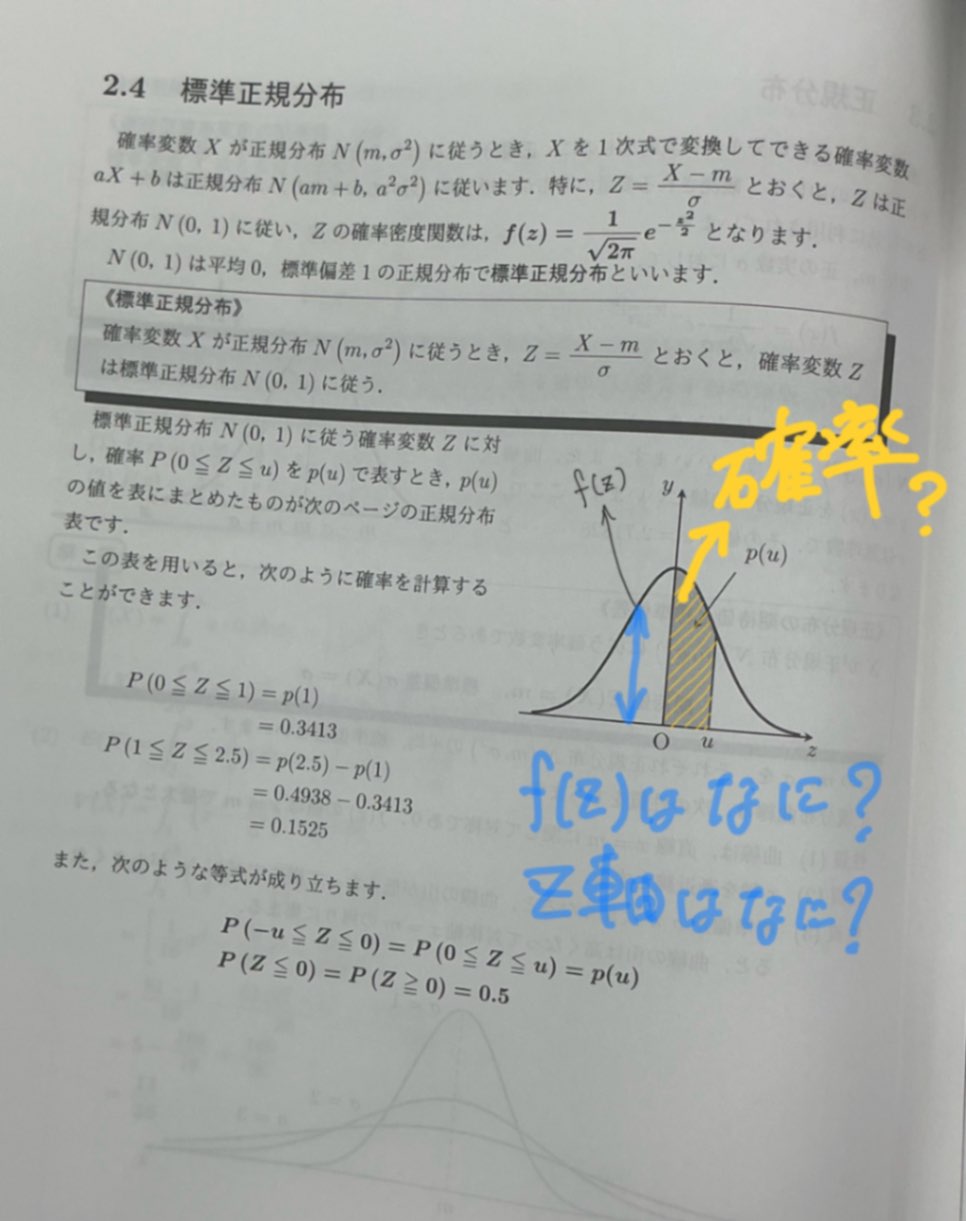 2.4 標準正規分布
確率変数 X が正規分布 N(m, σ²) に従うとき，X を1次式で変換してできる確率変数
aX + b は正規分布 N(am + b, a²σ²) に従います．特に，Z = (X − m)/σ とおくと，Z は正
規分布 N(0, 1) に従い，Z の確率密度関数は，f(z) = 1/√2π e^(−z²/2) となります．
N(0, 1) は平均0，標準偏差1の正規分布で標準正規分布といいます．
《標準正規分布》
確率変数 X が正規分布 N(m, σ²) に従うとき，Z = (X − m)/σ とおくと，確率変数 Z
は標準正規分布 N(0, 1) に従う．
標準正規分布 N(0, 1) に従う確率変数 Z に対
し，確率 P(0 ≦ Z ≦ u) を p(u) で表すとき，p(u)
の値を表にまとめたものが次のページの正規分布
表です．
この表を用いると，次のように確率を計算する
ことができます．
確率?
f(z)
y
p(u)
O
u
z
P(0 ≦ Z ≦ 1) = p(1)
= 0.3413
P(1 ≦ Z ≦ 2.5) = p(2.5) − p(1)
= 0.4938 − 0.3413
= 0.1525
f(z)はなに?
Z軸はなに?
また，次のような等式が成り立ちます．
P(−u ≦ Z ≦ 0) = P(0 ≦ Z ≦ u) = p(u)
P(Z ≦ 0) = P(Z ≧ 0) = 0.5